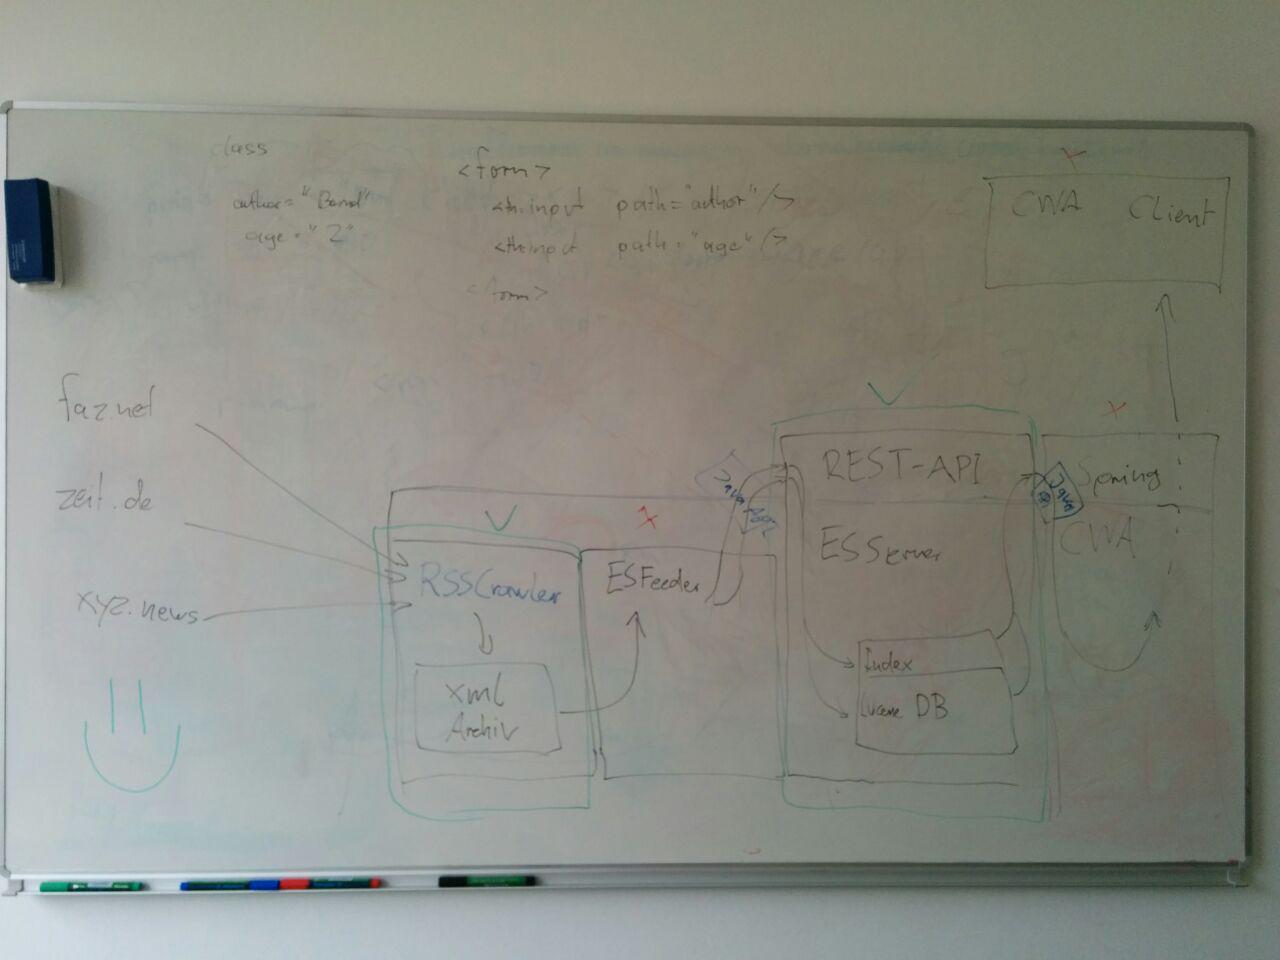 class
author = "Bernd"
age = "2"
<form>
<th:input path="author"/>
<th:input path="age"/>
<form>
CWA Client
faz.net
zeit.de
xyz.news
RSSCrawler
xml
Archiv
ESFeeder
Java
REST-API
ESServer
Index
Lucene DB
Java
API
Spring
CWA